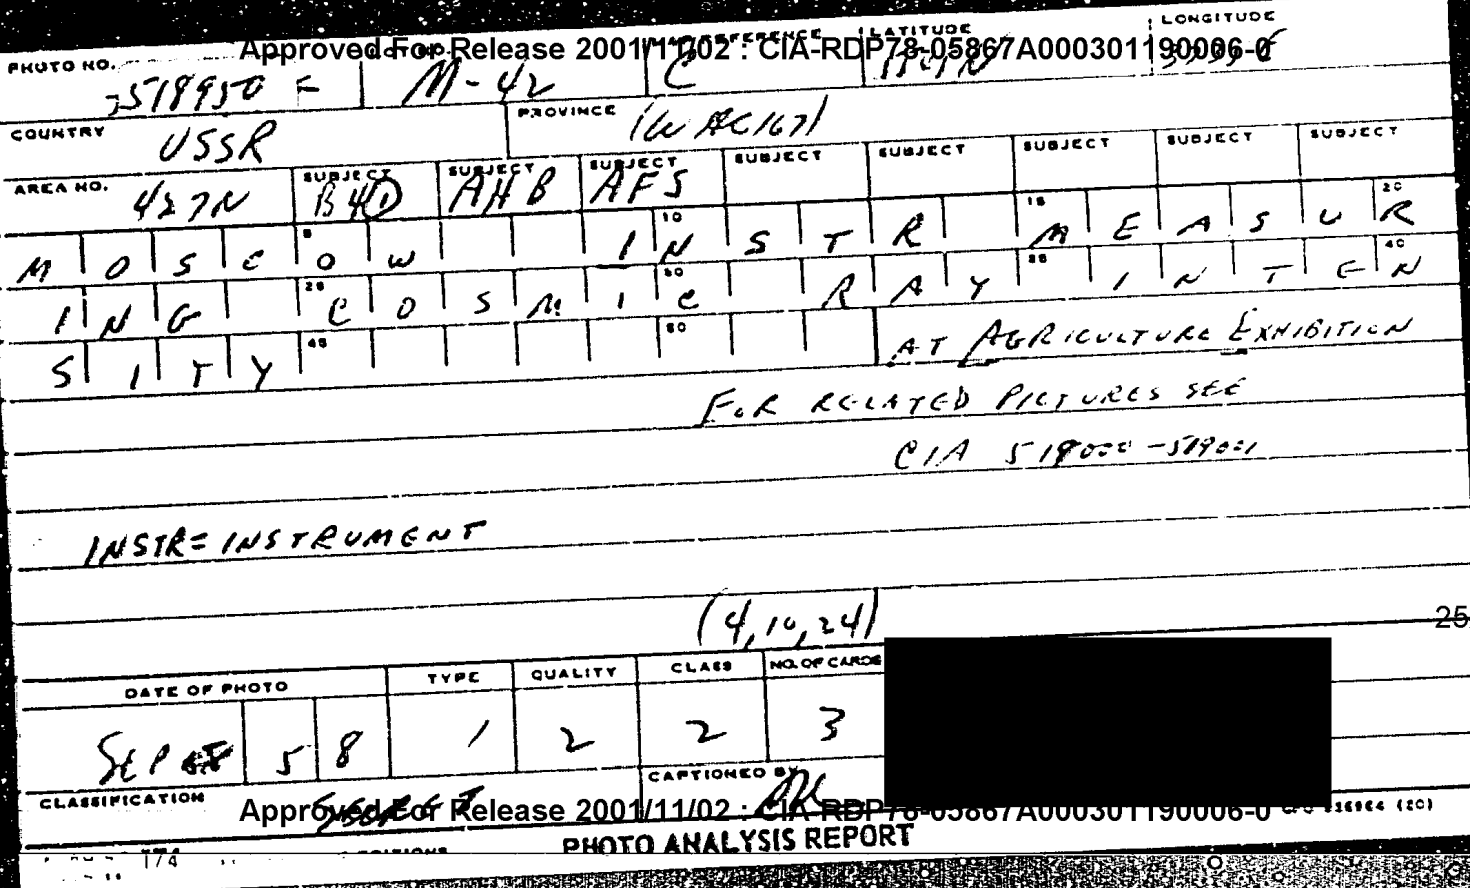 Approved For Release 2001/11/02 : CIA-RDP78-05867A000301190006-0
PHOTO NO. LATITUDE LONGITUDE
M-42 C
COUNTRY USSR PROVINCE (WAC167)
AREA NO. 427N SUBJECT B4D SUBJECT AHB SUBJECT AFS SUBJECT SUBJECT SUBJECT SUBJECT SUBJECT
MOSCOW INSTR MEASUR
ING COSMIC RAY INTEN
SITY AT AGRICULTURE EXHIBITION
FOR RELATED PICTURES SEE
CIA
INSTR= INSTRUMENT
(4,10,24)
25
DATE OF PHOTO TYPE QUALITY CLASS NO. OF CARDS
SEPT 58 1 2 2 3
CLASSIFICATION CAPTIONED BY
Approved For Release 2001/11/02 : CIA-RDP78-05867A000301190006-0
PHOTO ANALYSIS REPORT
174